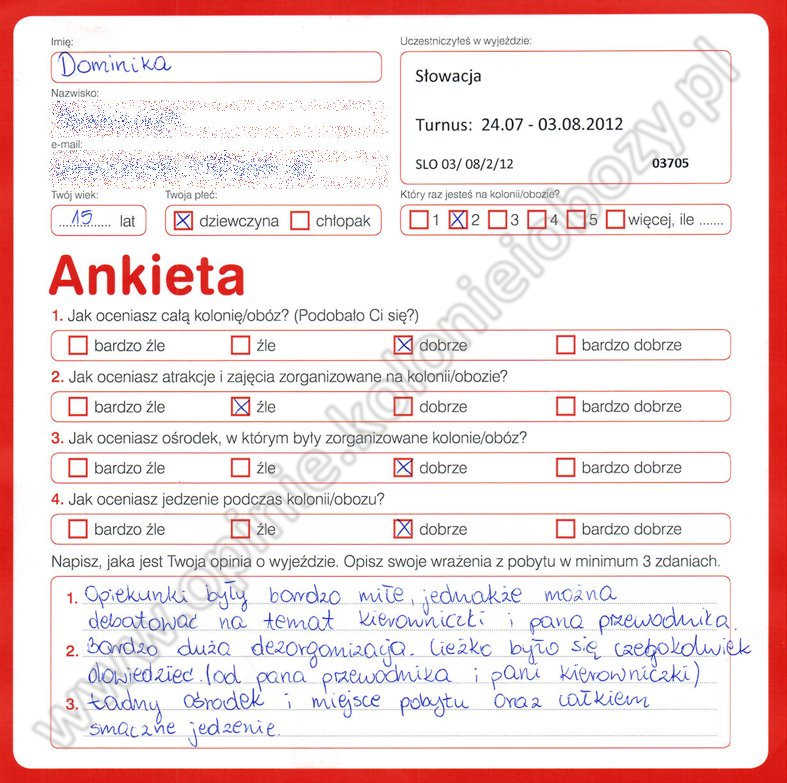 Imię:
Dominika
Uczestniczyłeś w wyjeździe:
Słowacja
Turnus: 24.07 - 03.08.2012
SLO 03/ 08/2/12 03705
Nazwisko:
e-mail:
Twój wiek:
15 lat
Twoja płeć:
dziewczyna chłopak
Który raz jesteś na kolonii/obozie?
1 2 3 4 5 więcej, ile .......
Ankieta
1. Jak oceniasz całą kolonię/obóz? (Podobało Ci się?)
bardzo źle źle dobrze bardzo dobrze
2. Jak oceniasz atrakcje i zajęcia zorganizowane na kolonii/obozie?
bardzo źle źle dobrze bardzo dobrze
3. Jak oceniasz ośrodek, w którym były zorganizowane kolonie/obóz?
bardzo źle źle dobrze bardzo dobrze
4. Jak oceniasz jedzenie podczas kolonii/obozu?
bardzo źle źle dobrze bardzo dobrze
Napisz, jaka jest Twoja opinia o wyjeździe. Opisz swoje wrażenia z pobytu w minimum 3 zdaniach.
1. Opiekunki były bardzo miłe, jednakże można
debatować na temat kierowniczki i pana przewodnika.
2. Bardzo duża dezorganizacja. Cieżko było się czegokolwiek
dowiedzieć. (od pana przewodnika i pani kierowniczki)
3. Ładny ośrodek i miejsce pobytu oraz całkiem
smaczne jedzenie.
www.opinie.kolonieiobozy.pl